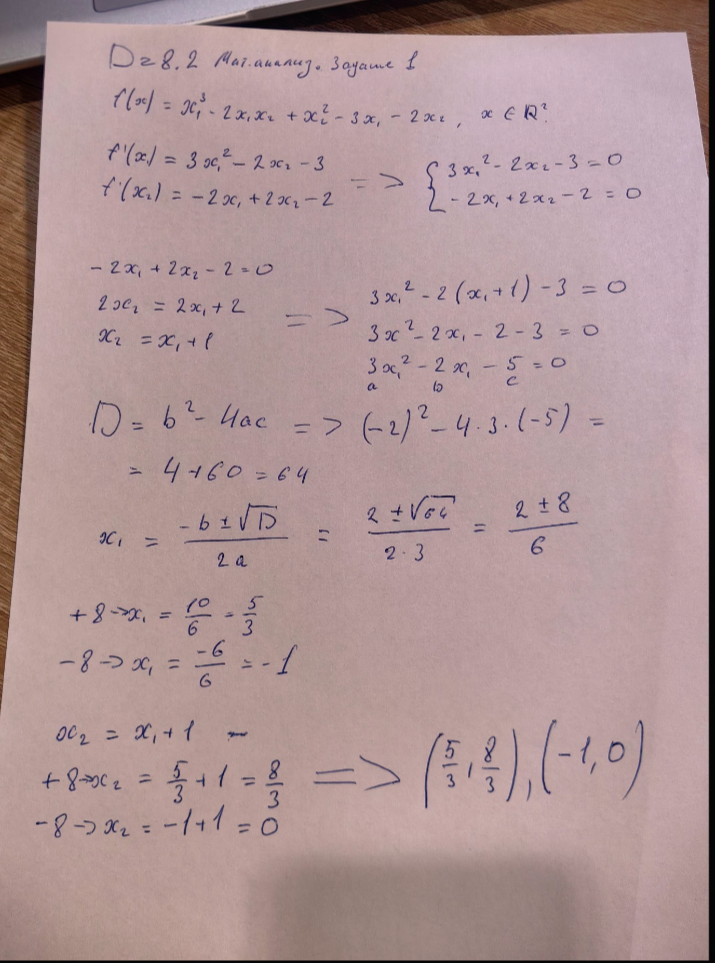 Dz 8.2 Мат.анализ. Задание 1
f(x) = x₁³ - 2x₁x₂ + x₂² - 3x₁ - 2x₂, x ∈ ℝ²
f'(x) = 3x₁² - 2x₂ - 3
f'(x₂) = -2x₁ + 2x₂ - 2
=> { 3x₁² - 2x₂ - 3 = 0
- 2x₁ + 2x₂ - 2 = 0
- 2x₁ + 2x₂ - 2 = 0
2x₂ = 2x₁ + 2
x₂ = x₁ + 1
=> 3x₁² - 2(x₁ + 1) - 3 = 0
3x² - 2x₁ - 2 - 3 = 0
3x₁² - 2x₁ - 5 = 0
a b c
D = b² - 4ac => (-2)² - 4·3·(-5) =
= 4 + 60 = 64
x₁ = (-b ± √D)/(2a) = (2 ± √64)/(2·3) = (2 ± 8)/6
+8 -> x₁ = 10/6 = 5/3
-8 -> x₁ = -6/6 = -1
x₂ = x₁ + 1
+8 -> x₂ = 5/3 + 1 = 8/3
-8 -> x₂ = -1 + 1 = 0
=> (5/3, 8/3), (-1, 0)